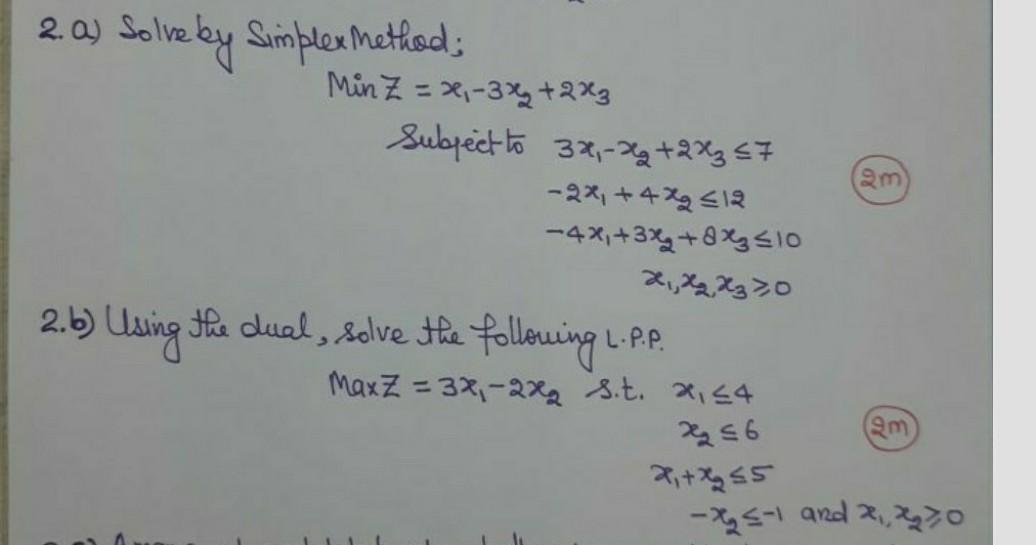 2. a) Solve by Simplex Method;
Min Z = x₁ - 3x₂ + 2x₃
Subject to 3x₁ - x₂ + 2x₃ ≤ 7
-2x₁ + 4x₂ ≤ 12
2m
-4x₁ + 3x₂ + 8x₃ ≤ 10
x₁, x₂, x₃ ≥ 0
2.b) Using the dual, solve the following L.P.P.
Max Z = 3x₁ - 2x₂ s.t. x₁ ≤ 4
x₂ ≤ 6
2m
x₁ + x₂ ≤ 5
-x₂ ≤ -1 and x₁, x₂ ≥ 0